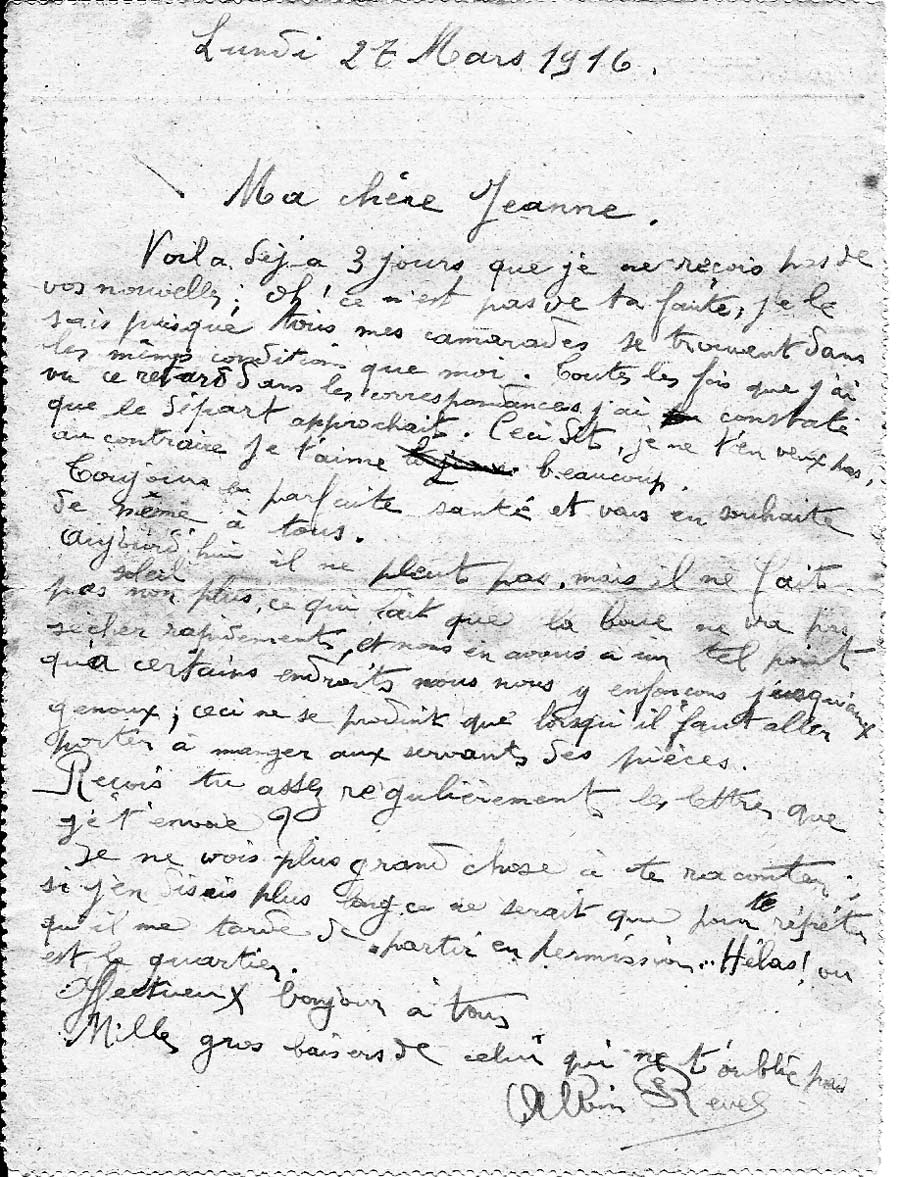 Lundi 27 Mars 1916.
Ma chère Jeanne.
Voila déja 3 jours que je ne reçois pas de
vos nouvelles; oh! ce n'est pas de ta faute, je le
sais puisque tous mes camarades se trouvent dans
les mêmes conditions que moi. Toutes les fois que j'ai
vu ce retard dans les correspondances j'ai constaté
que le départ approchait. Ceci dit, je ne t'en veux pas,
au contraire je t'aime beaucoup.
Toujours en parfaite santé et vous en souhaite
de même à tous.
Aujourd'hui il ne pleut pas, mais il ne fait
pas soleil non plus, ce qui fait que la boue ne va pas
sécher rapidement, et nous en avons à un tel point
qu'à certains endroits nous nous y enfonçons jusqu'aux
genoux; ceci ne se produit que lorsqu'il faut aller
porter à manger aux servants des pièces.
Reçois tu assez régulièrement les lettres que
je t'envoie?
Je ne vois plus grand chose à te raconter;
si j'en disais plus long ce ne serait que pour te répéter
qu'il me tarde de partir en permission.. Hélas! ou
est le quartier.
Affectueux bonjour à tous
Mille gros baisers de celui qui ne t'oublie pas
Albin Revel